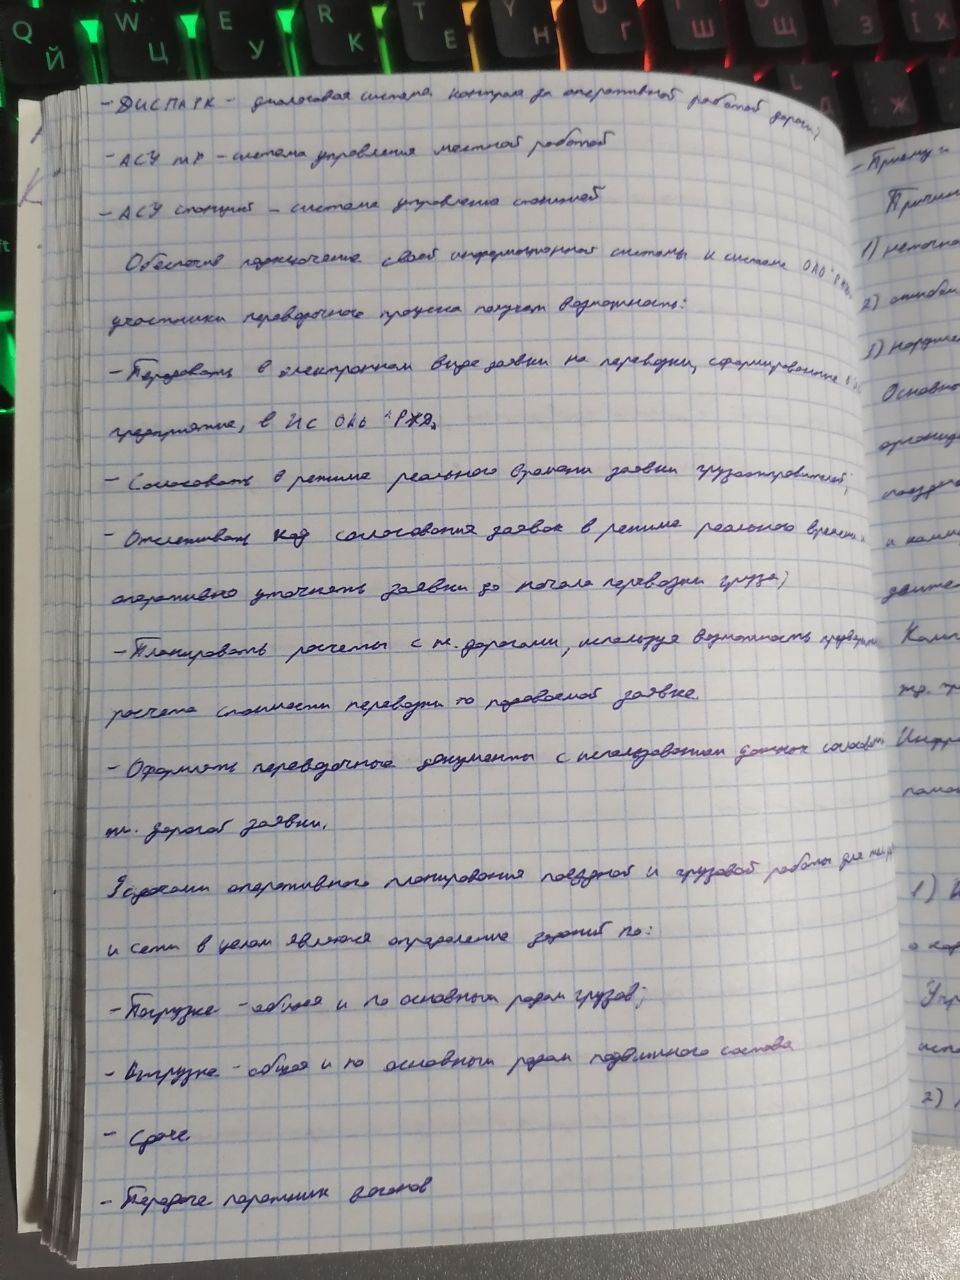 - ДИСПАРК - диалоговая система контроля за оперативной работой дороги;
- АСУ МР - система управления местной работой
- АСУ станций - система управления станцией
Обеспечив подключение своей информационной системы к системе ОАО "РЖД",
участники перевозочного процесса получат возможность:
- Передавать в электронном виде заявки на перевозки, сформированные в
предприятие, в ИС ОАО "РЖД"
- Согласовать в режиме реального времени заявки грузоотправителей;
- Отслеживать ход согласования заявок в режиме реального времени и
оперативно уточнять заявки до начала перевозки груза;
- Планировать расчеты с ж. дорогами, используя возможность
расчета стоимости перевозки по подаваемой заявке.
- Оформлять перевозочные документы с использованием данных
ж. дорогой заявки.
Задачами оперативного планирования поездной и грузовой работы для
и сети в целом являются определение заданий по:
- Погрузке - общая и по основным родам грузов;
- Выгрузке - общая и по основным родам подвижного состава
- Сдаче
- Передаче порожних вагонов
1)
2)
3)
Основно
1)
2)
Q W E R T Y
Й Ц У К Е Н Г Ш Щ З Х
Д Ж